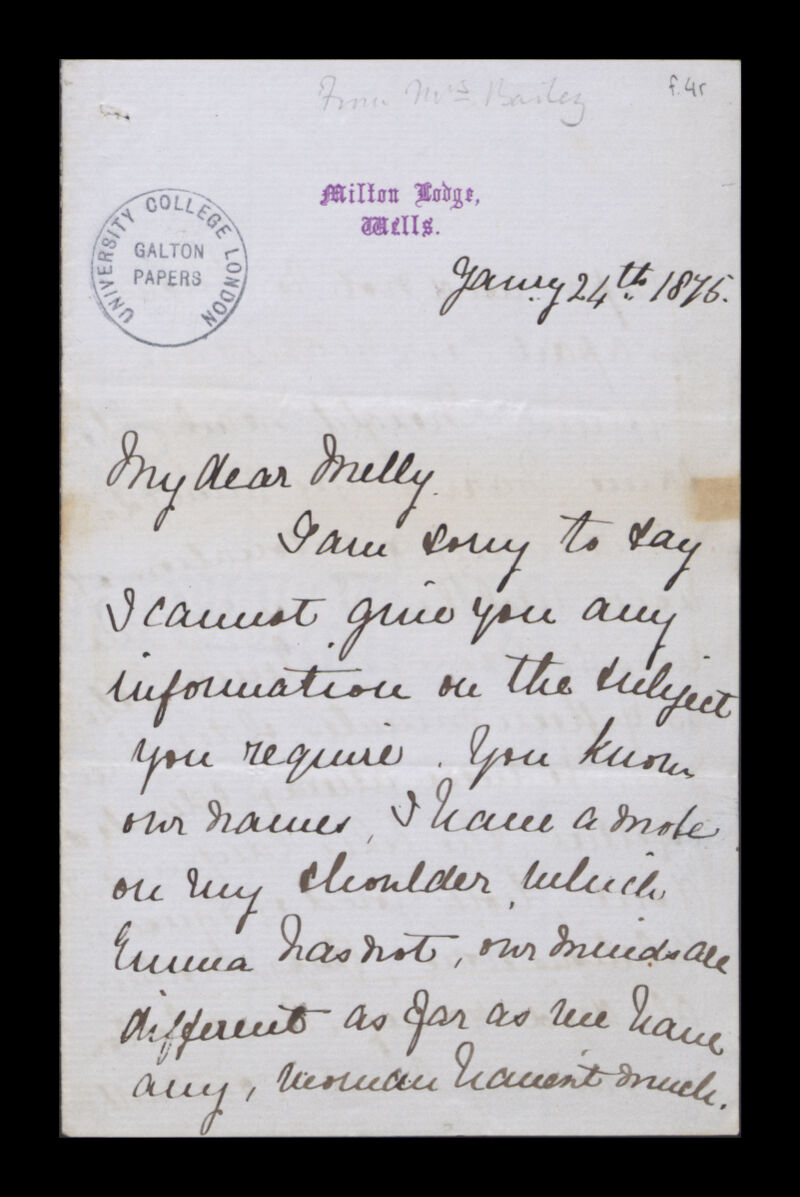 From Mrs Bailey
f.4r
Milton Lodge,
Wells.
UNIVERSITY COLLEGE LONDON
GALTON
PAPERS
Jany 24th 1876.
My dear Melly
I am sorry to say
I cannot give you any
information on the subject
you require. You know
our names, I have a mole
on my shoulder, which
Emma has not, our minds are
different as far as we have
any, woman haven't much.